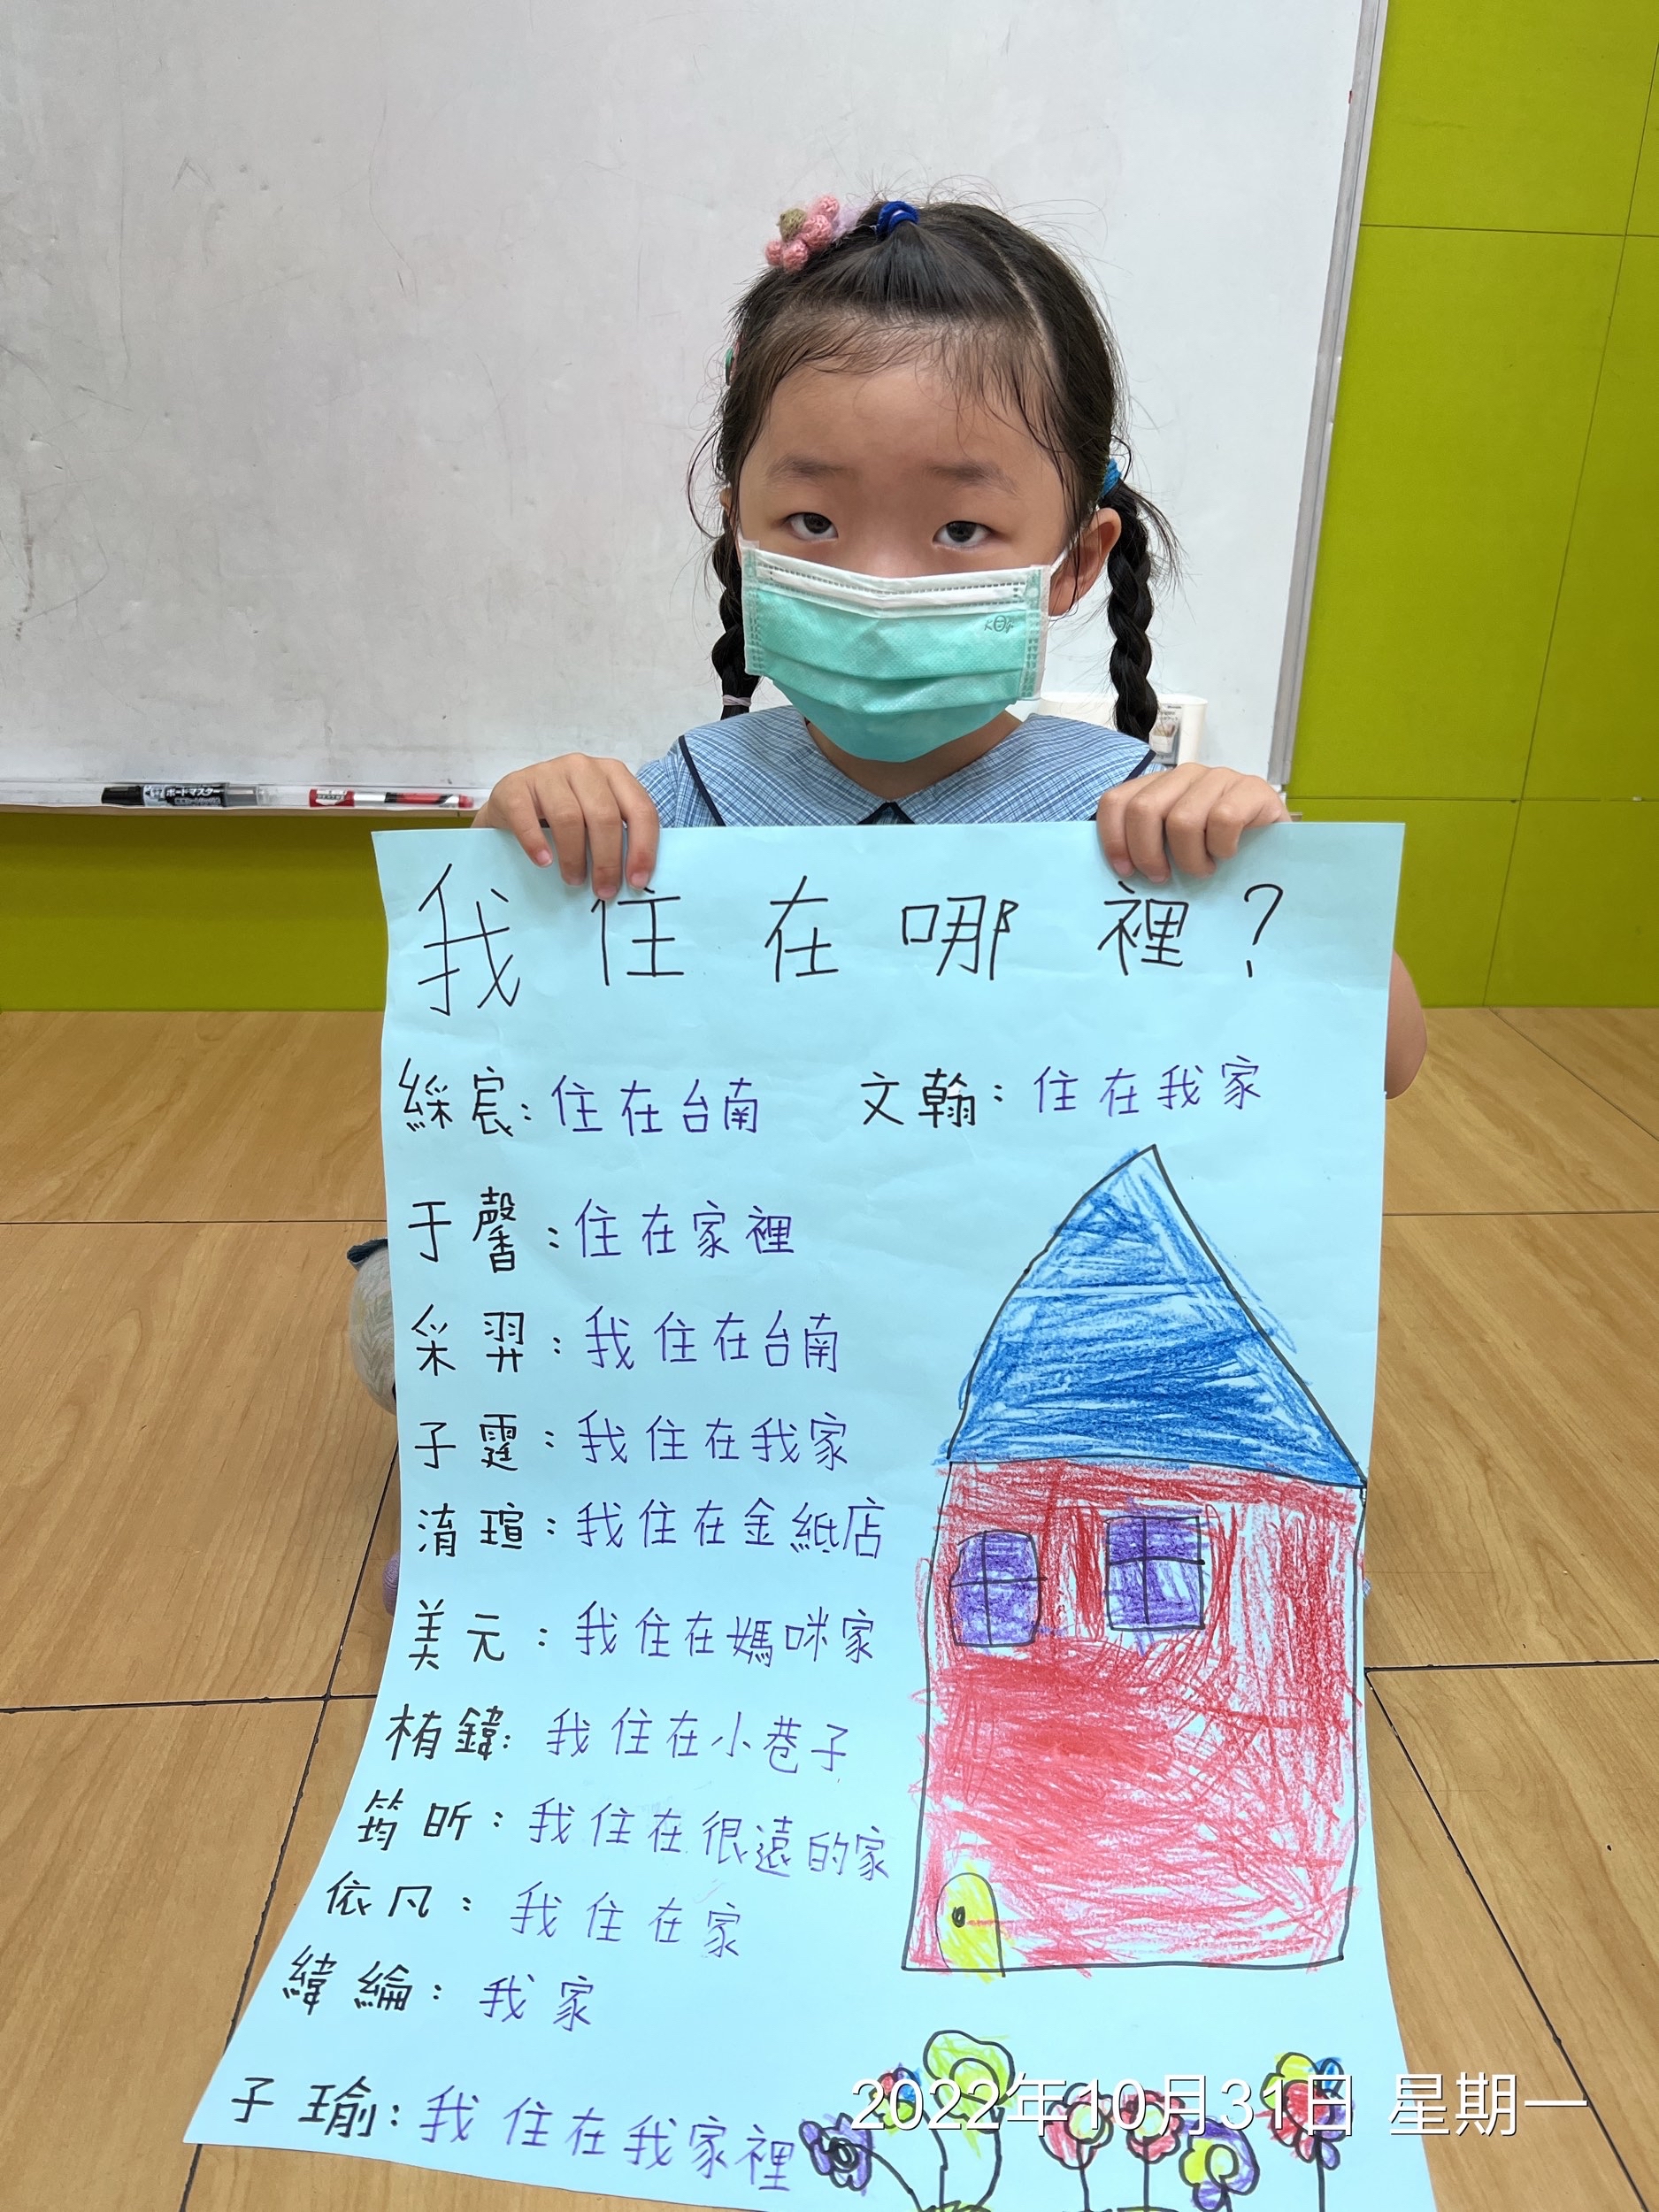 我住在哪裡?
綵宸:住在台南 文翰:住在我家
于馨:住在家裡
采羿:我住在台南
子霆:我住在我家
淯瑄:我住在金紙店
美元:我住在媽咪家
栯鍏:我住在小巷子
筠昕:我住在很遠的家
依凡:我住在家
緯綸:我家
子瑜:我住在我家裡
2022年10月31日 星期一
ボードマスター